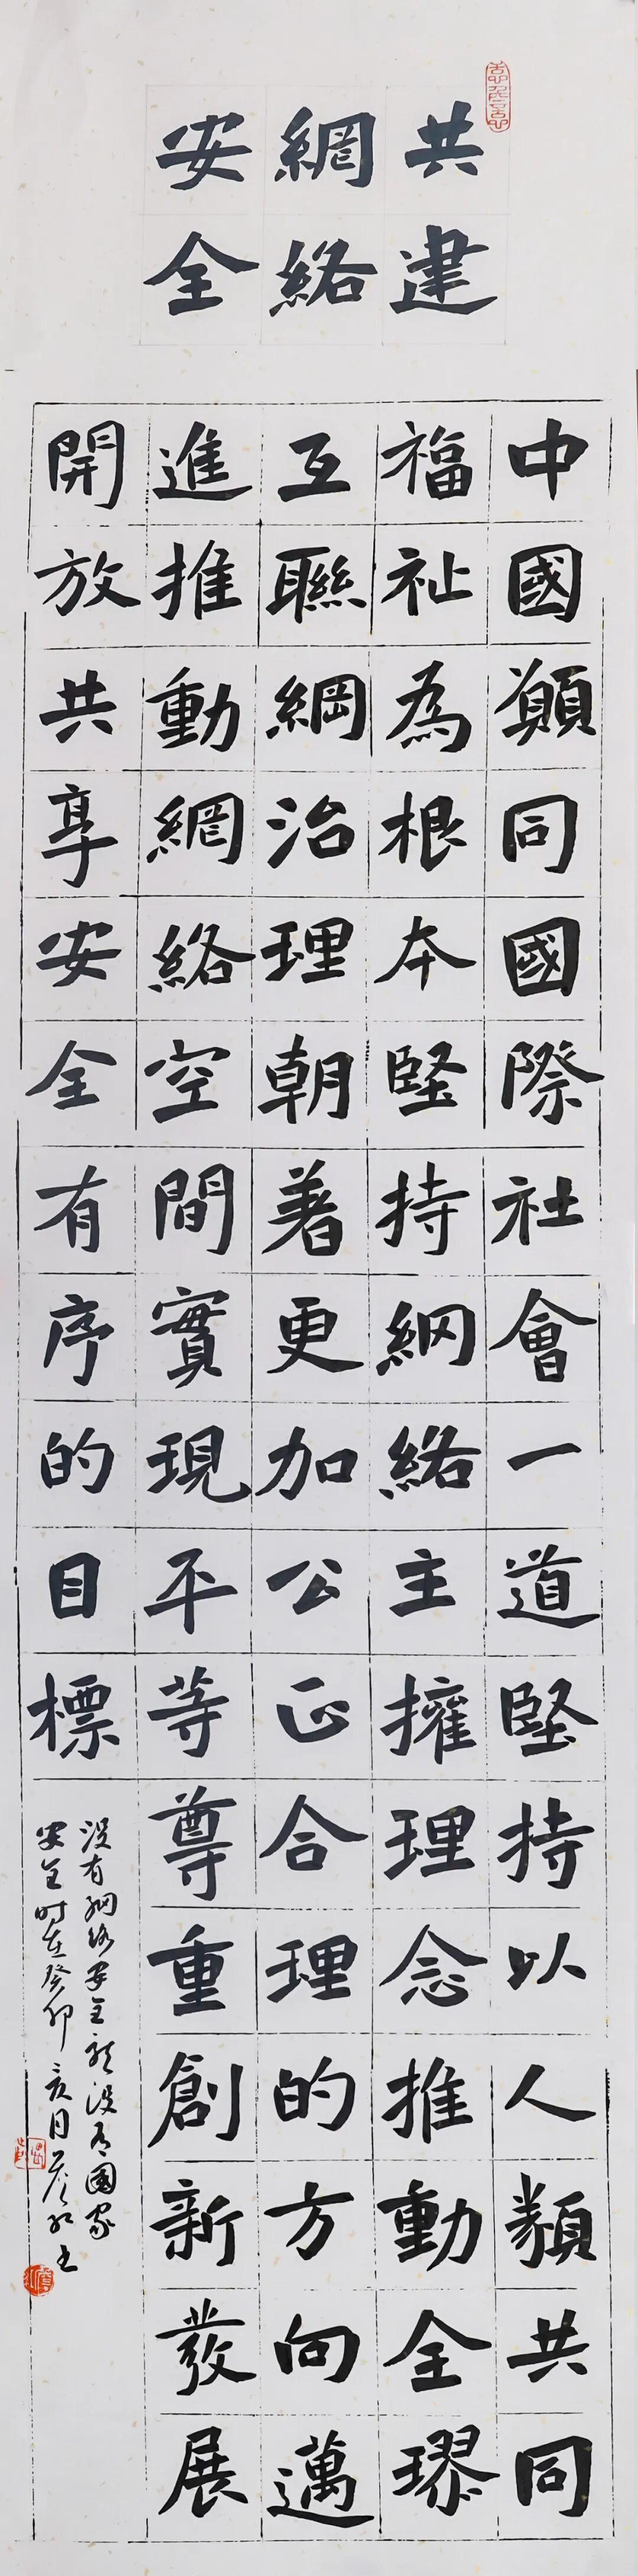 共建
網絡
安全
中國願同國際社會一道堅持以人類共同
福祉為根本堅持網絡主擁理念推動全璆
互聯綱治理朝著更加公正合理的方向邁
進推動網絡空間實現平等尊重創新發展
開放共享安全有序的目標
没有網絡安全就没有國家
安全时在癸卯亥月